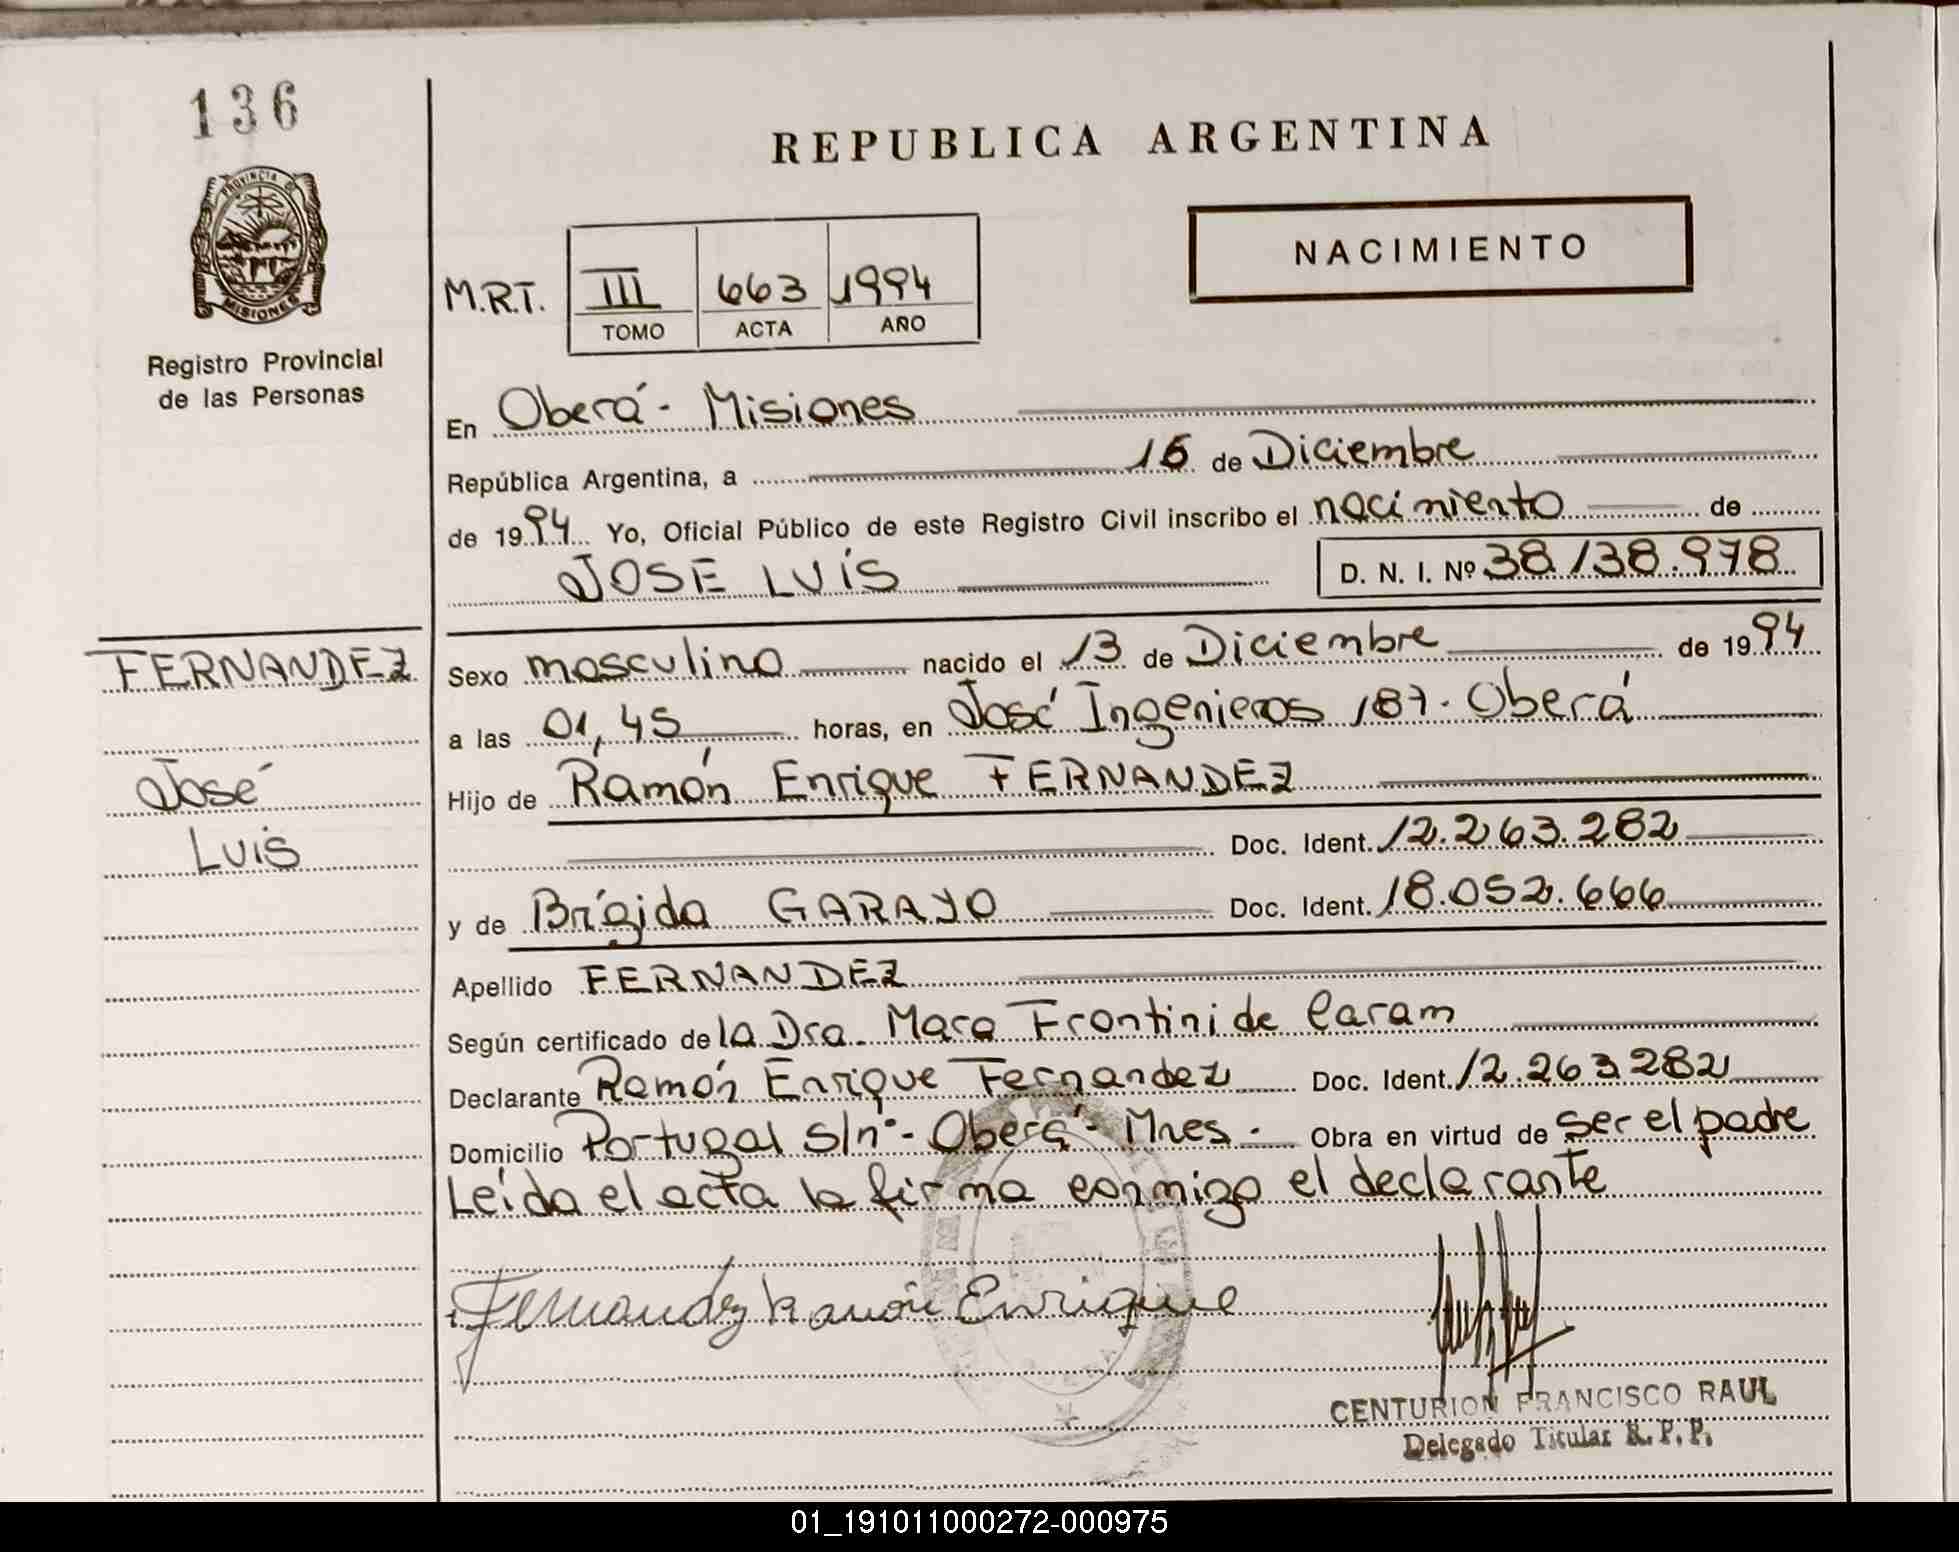 136
PROVINCIA DE
MISIONES
Registro Provincial
de las Personas
REPUBLICA ARGENTINA
NACIMIENTO
M.R.T. III 663 1994
TOMO ACTA AÑO
En Oberá - Misiones
República Argentina, a 15 de Diciembre
de 1994 Yo, Oficial Público de este Registro Civil inscribo el nacimiento de
JOSE LUIS D. N. I. Nº 38.138.978
FERNANDEZ
José
Luis
Sexo masculino nacido el 13 de Diciembre de 1994
a las 01,45 horas, en José Ingenieros 187 - Oberá
Hijo de Ramón Enrique FERNANDEZ
Doc. Ident. 12.263.282
y de Brígida GARAYO Doc. Ident. 18.052.666
Apellido FERNANDEZ
Según certificado de la Dra. Mara Frontini de Caram
Declarante Ramón Enrique Fernandez Doc. Ident. 12.263.282
Domicilio Portugal s/nº - Oberá - Mnes - Obra en virtud de ser el padre
Leída el acta la firma conmigo el declarante
Fernandez Ramón Enrique
CENTURION FRANCISCO RAUL
Delegado Titular R. P. P.
01_191011000272-000975